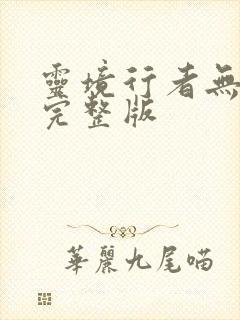 靈境行者無
完整版
華麗九尾喵